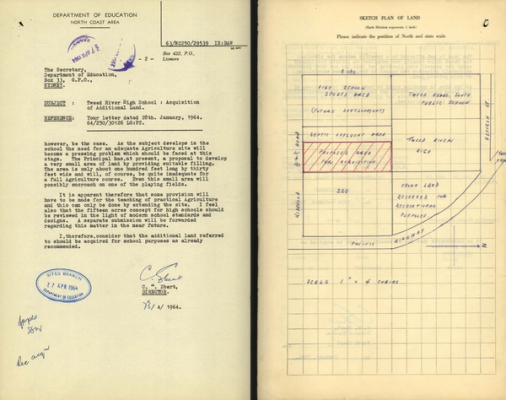 DEPARTMENT OF EDUCATION
NORTH COAST AREA
- 2 -
Box 422, P.O.,
Lismore
The Secretary,
Department of Education,
Box 33, G.P.O.,
SYDNEY.
SUBJECT : Tweed River High School : Acquisition
of Additional Land.
REFERENCE: Your letter dated 28th January, 1964.
however, be the case. As the subject develops in the
school the need for an adequate Agriculture site will
become a pressing problem which should be faced at this
stage. The Principal has, at present, a proposal to develop a
very small area of land by providing suitable filling.
The area is only about one hundred feet long by thirty
feet wide and will, of course, be quite inadequate for
a full Agriculture course. Even this small area will
possibly encroach on one of the playing fields.
It is apparent therefore that some provision will
have to be made for the teaching of practical Agriculture
and this can only be done by extending the site. I feel
also that the fifteen acres concept for high schools should
be reviewed in the light of modern school standards and
designs. A separate submission will be forwarded
regarding this matter in the near future.
I, therefore, consider that the additional land referred
to should be acquired for school purposes as already
recommended.
DIRECTOR.
/4/1964.
SITES BRANCH
27 APR 1964
DEPARTMENT OF EDUCATION
SKETCH PLAN OF LAND
Please indicate the position of North and state scale
HIGH SCHOOL
SPORTS AREA
(FUTURE DEVELOPMENT)
TWEED HEADS SOUTH
PUBLIC SCHOOL
SEPTIC EFFLUENT AREA
TWEED RIVER
HIGH
PROPOSED AREA
FOR ACQUISITION
CROWN LAND
RESERVED FOR
RECREATIONAL
PURPOSES
PACIFIC HIGHWAY
N
SCALE 1" = 4 CHAINS